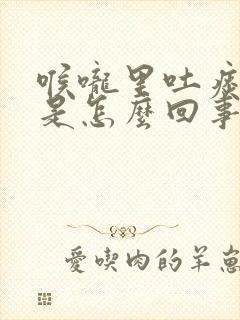 喉嚨里吐痰
是怎麼回事
愛喫肉的羊